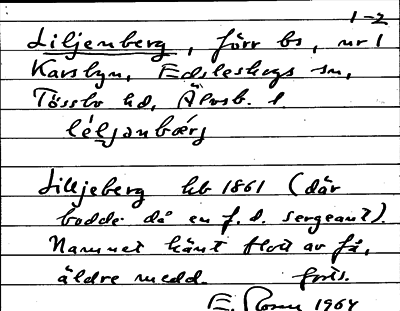 1-2
Liljenberg, förr bs, nr 1
Karsbyn, Edsleskogs sn,
Tössbo hd, Älvsb. l.
léljanbærj
Lilljeberg hb 1861 (där
bodde då en f. d. sergeant).
Namnet känt blott av få,
äldre medd. forts.
E. Rosen 1964